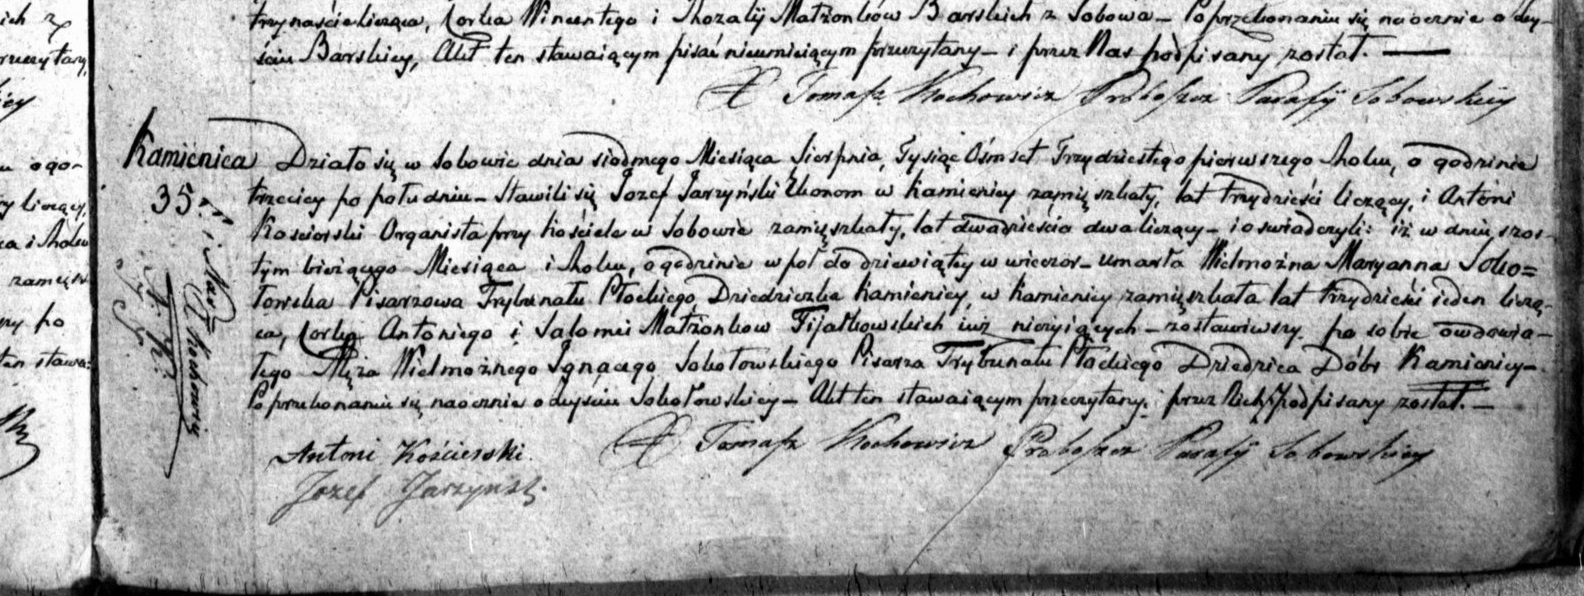 trzynaście licząca, Corka Wincentego i Rozalij Małżonków Barskich z Sobowa – Po przekonaniu się naocznie o zey-
ściu Barskiey, Akt ten stawaiącym pisać nieumieiącym przeczytany – i przez Nas podpisany został. —
X Tomasz Kochowicz Proboszcz Parafij Sobowskiey
Kamienica
35.
i Nas
X Kochowicz
Działo się w Sobowie dnia siodmego Miesiąca Sierpnia, Tysiąc Ośmset Trzydziestego pierwszego Roku, o godzinie
trzeciey po południu – Stawili się Jozef Jarzyński Ekonom w Kamienicy zamięszkały, lat trzydzieści liczący, i Antoni
Kościerski Organista przy kościele w Sobowie zamięszkały, lat dwadzieścia dwa liczący – i oswiadczyli: iż w dniu szos-
tym bieżącego Miesiąca i Roku, o godzinie w pół do dziewiątey w wieczor – umarła Wielmożna Maryanna Soko=
łowska Pisarzowa Trybunału Płockiego Dziedziczka Kamienicy, w Kamienicy zamięszkała lat trzydzieści ieden liczą-
ca, Corka Antoniego i Salomei Małżonkow Fijałkowskich iuż nieżyiących – zostawiwszy po sobie owdowia-
łego Męża Wielmożnego Ignacego Sokołowskiego Pisarza Trybunału Płockiego Dziedzica Dóbr Kamienicy –
Po przekonaniu się naocznie o zeysciu Sokołowskiey – Akt ten stawaiącym przeczytany, i przez Nich podpisany został. —
Antoni Kościerski.
X Tomasz Kochowicz Proboszcz Parafij Sobowskiey
Jozef Jarzyński.